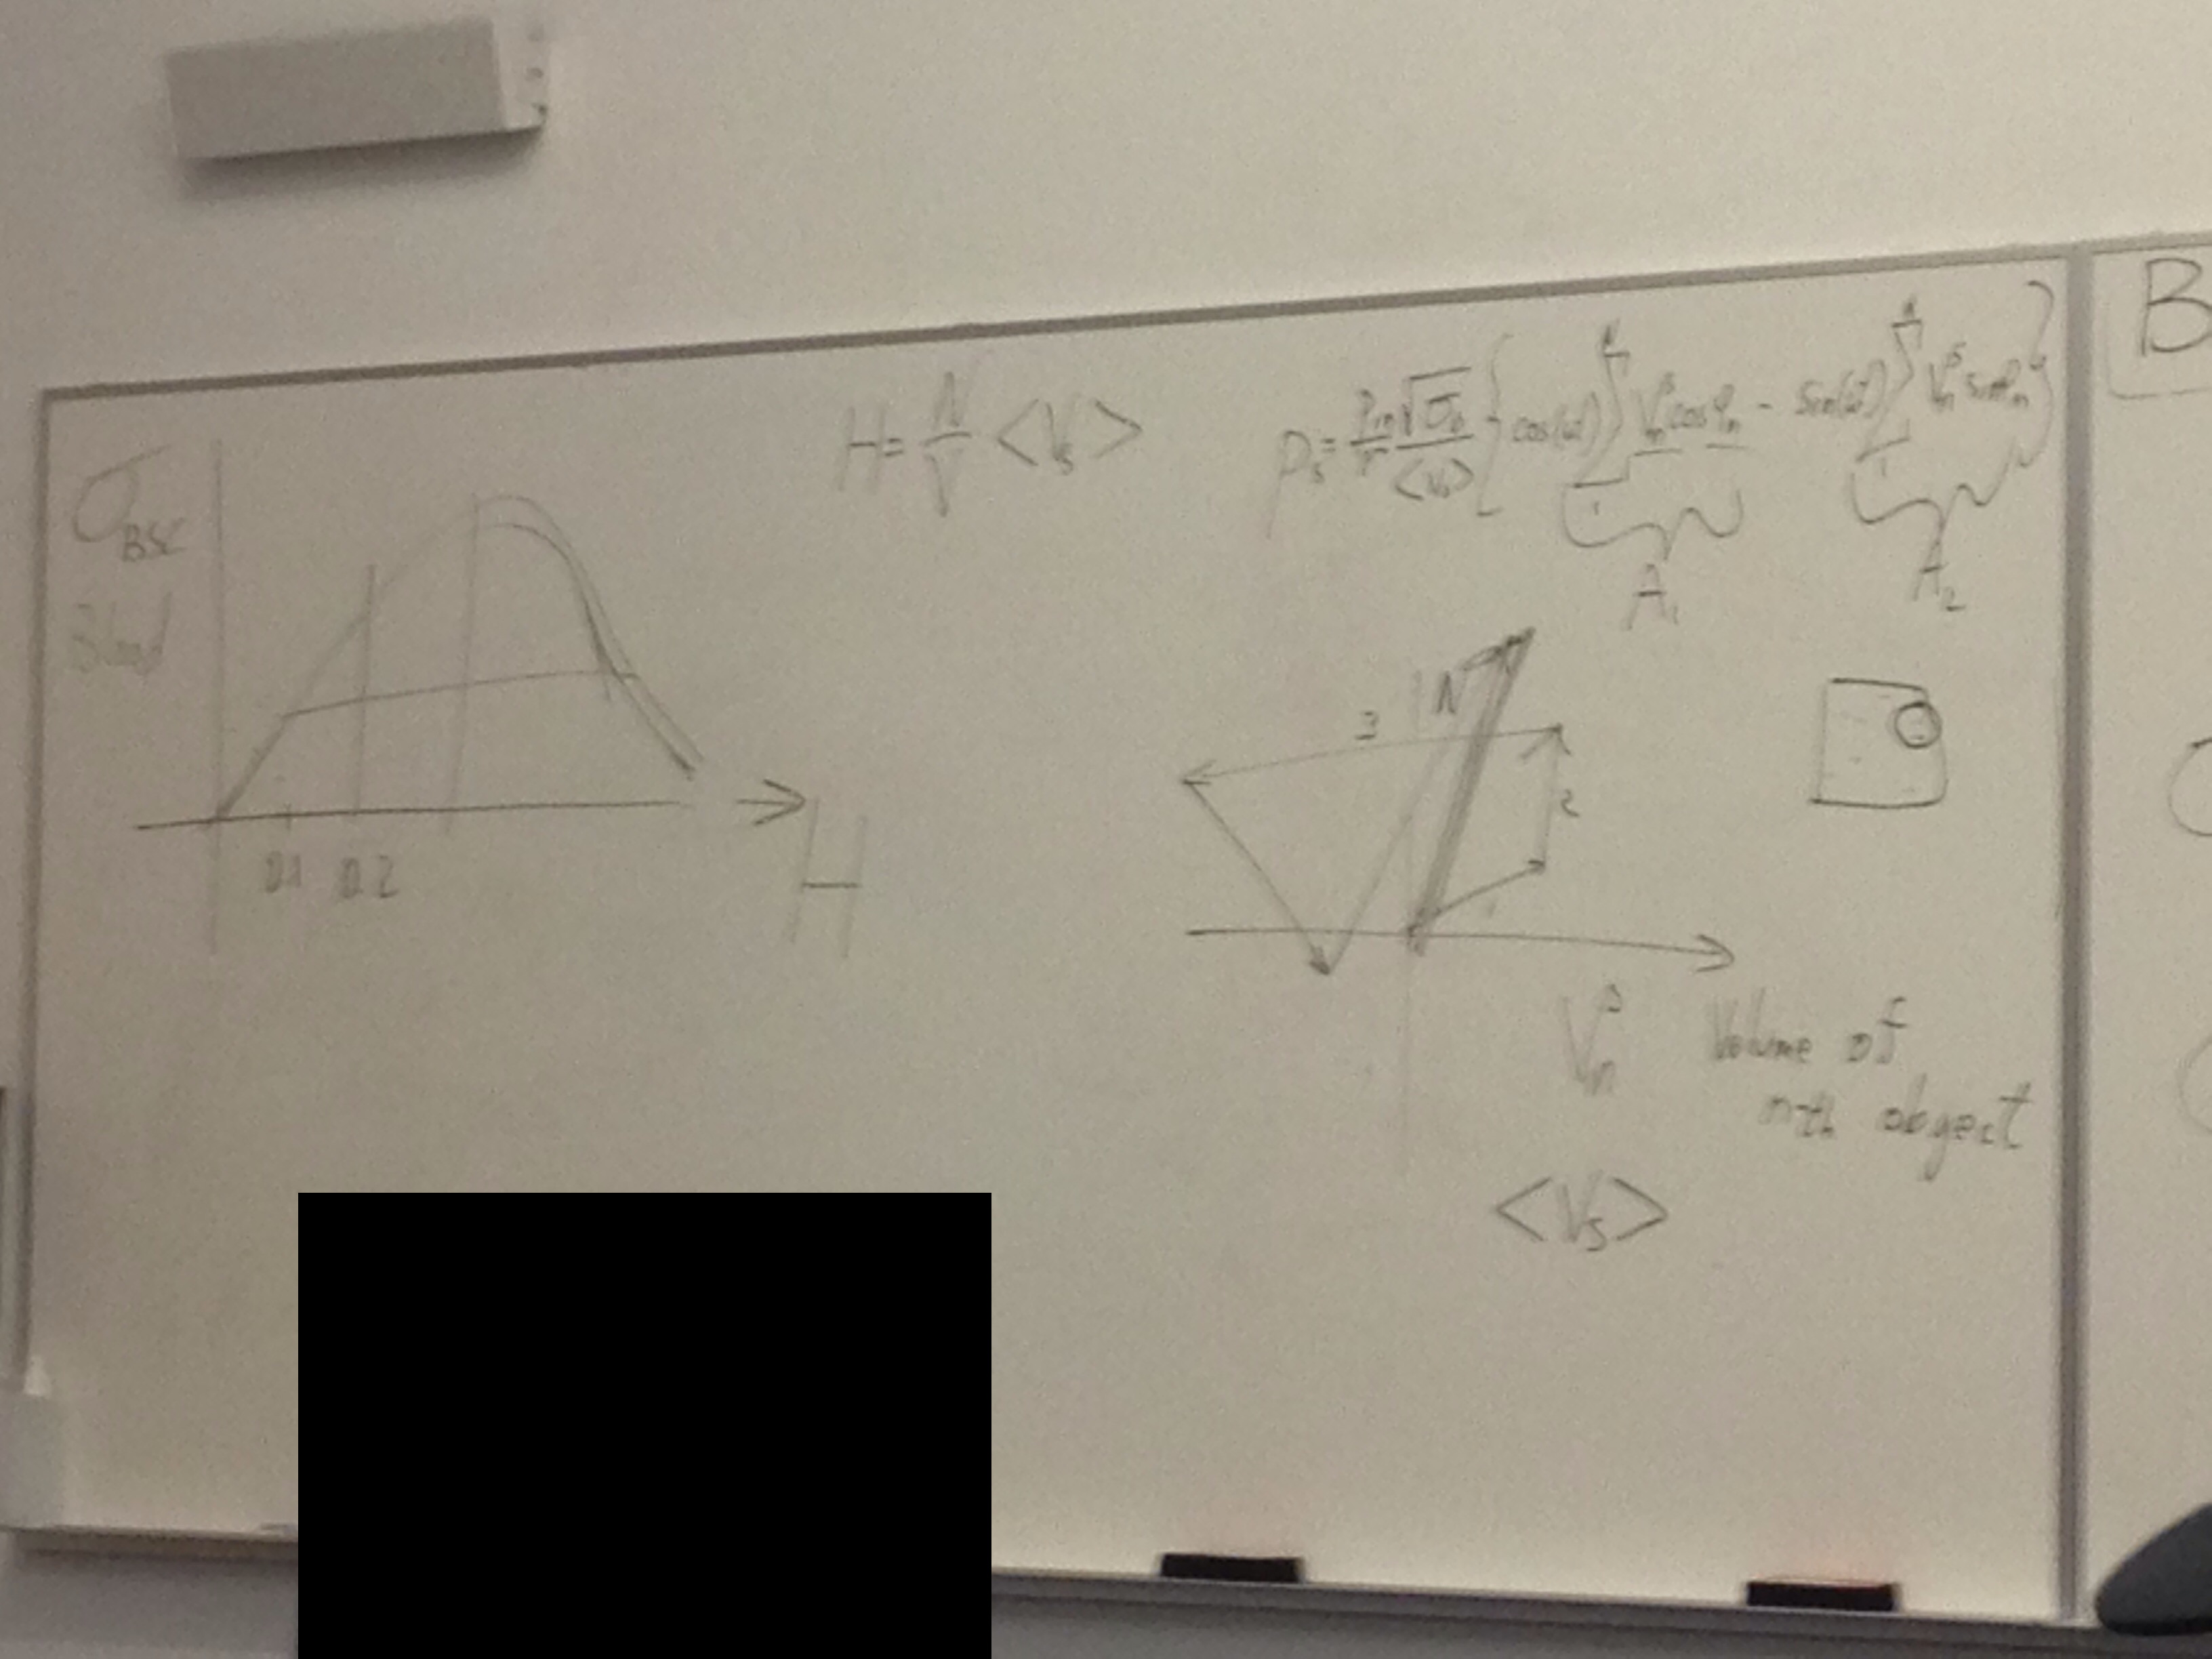 σ_BSC
Blood
0.1 0.2
H
H = N/V <V_s>
p_s = p_in/r √σ_b/<V_s> { cos(ωt) Σ_1^N V_n^s cos φ_n - sin(ωt) Σ_1^N V_n^s sin φ_n }
A_1 A_2
N
3
2
1
V_n^s Volume of
n-th obgect
<V_s>
B